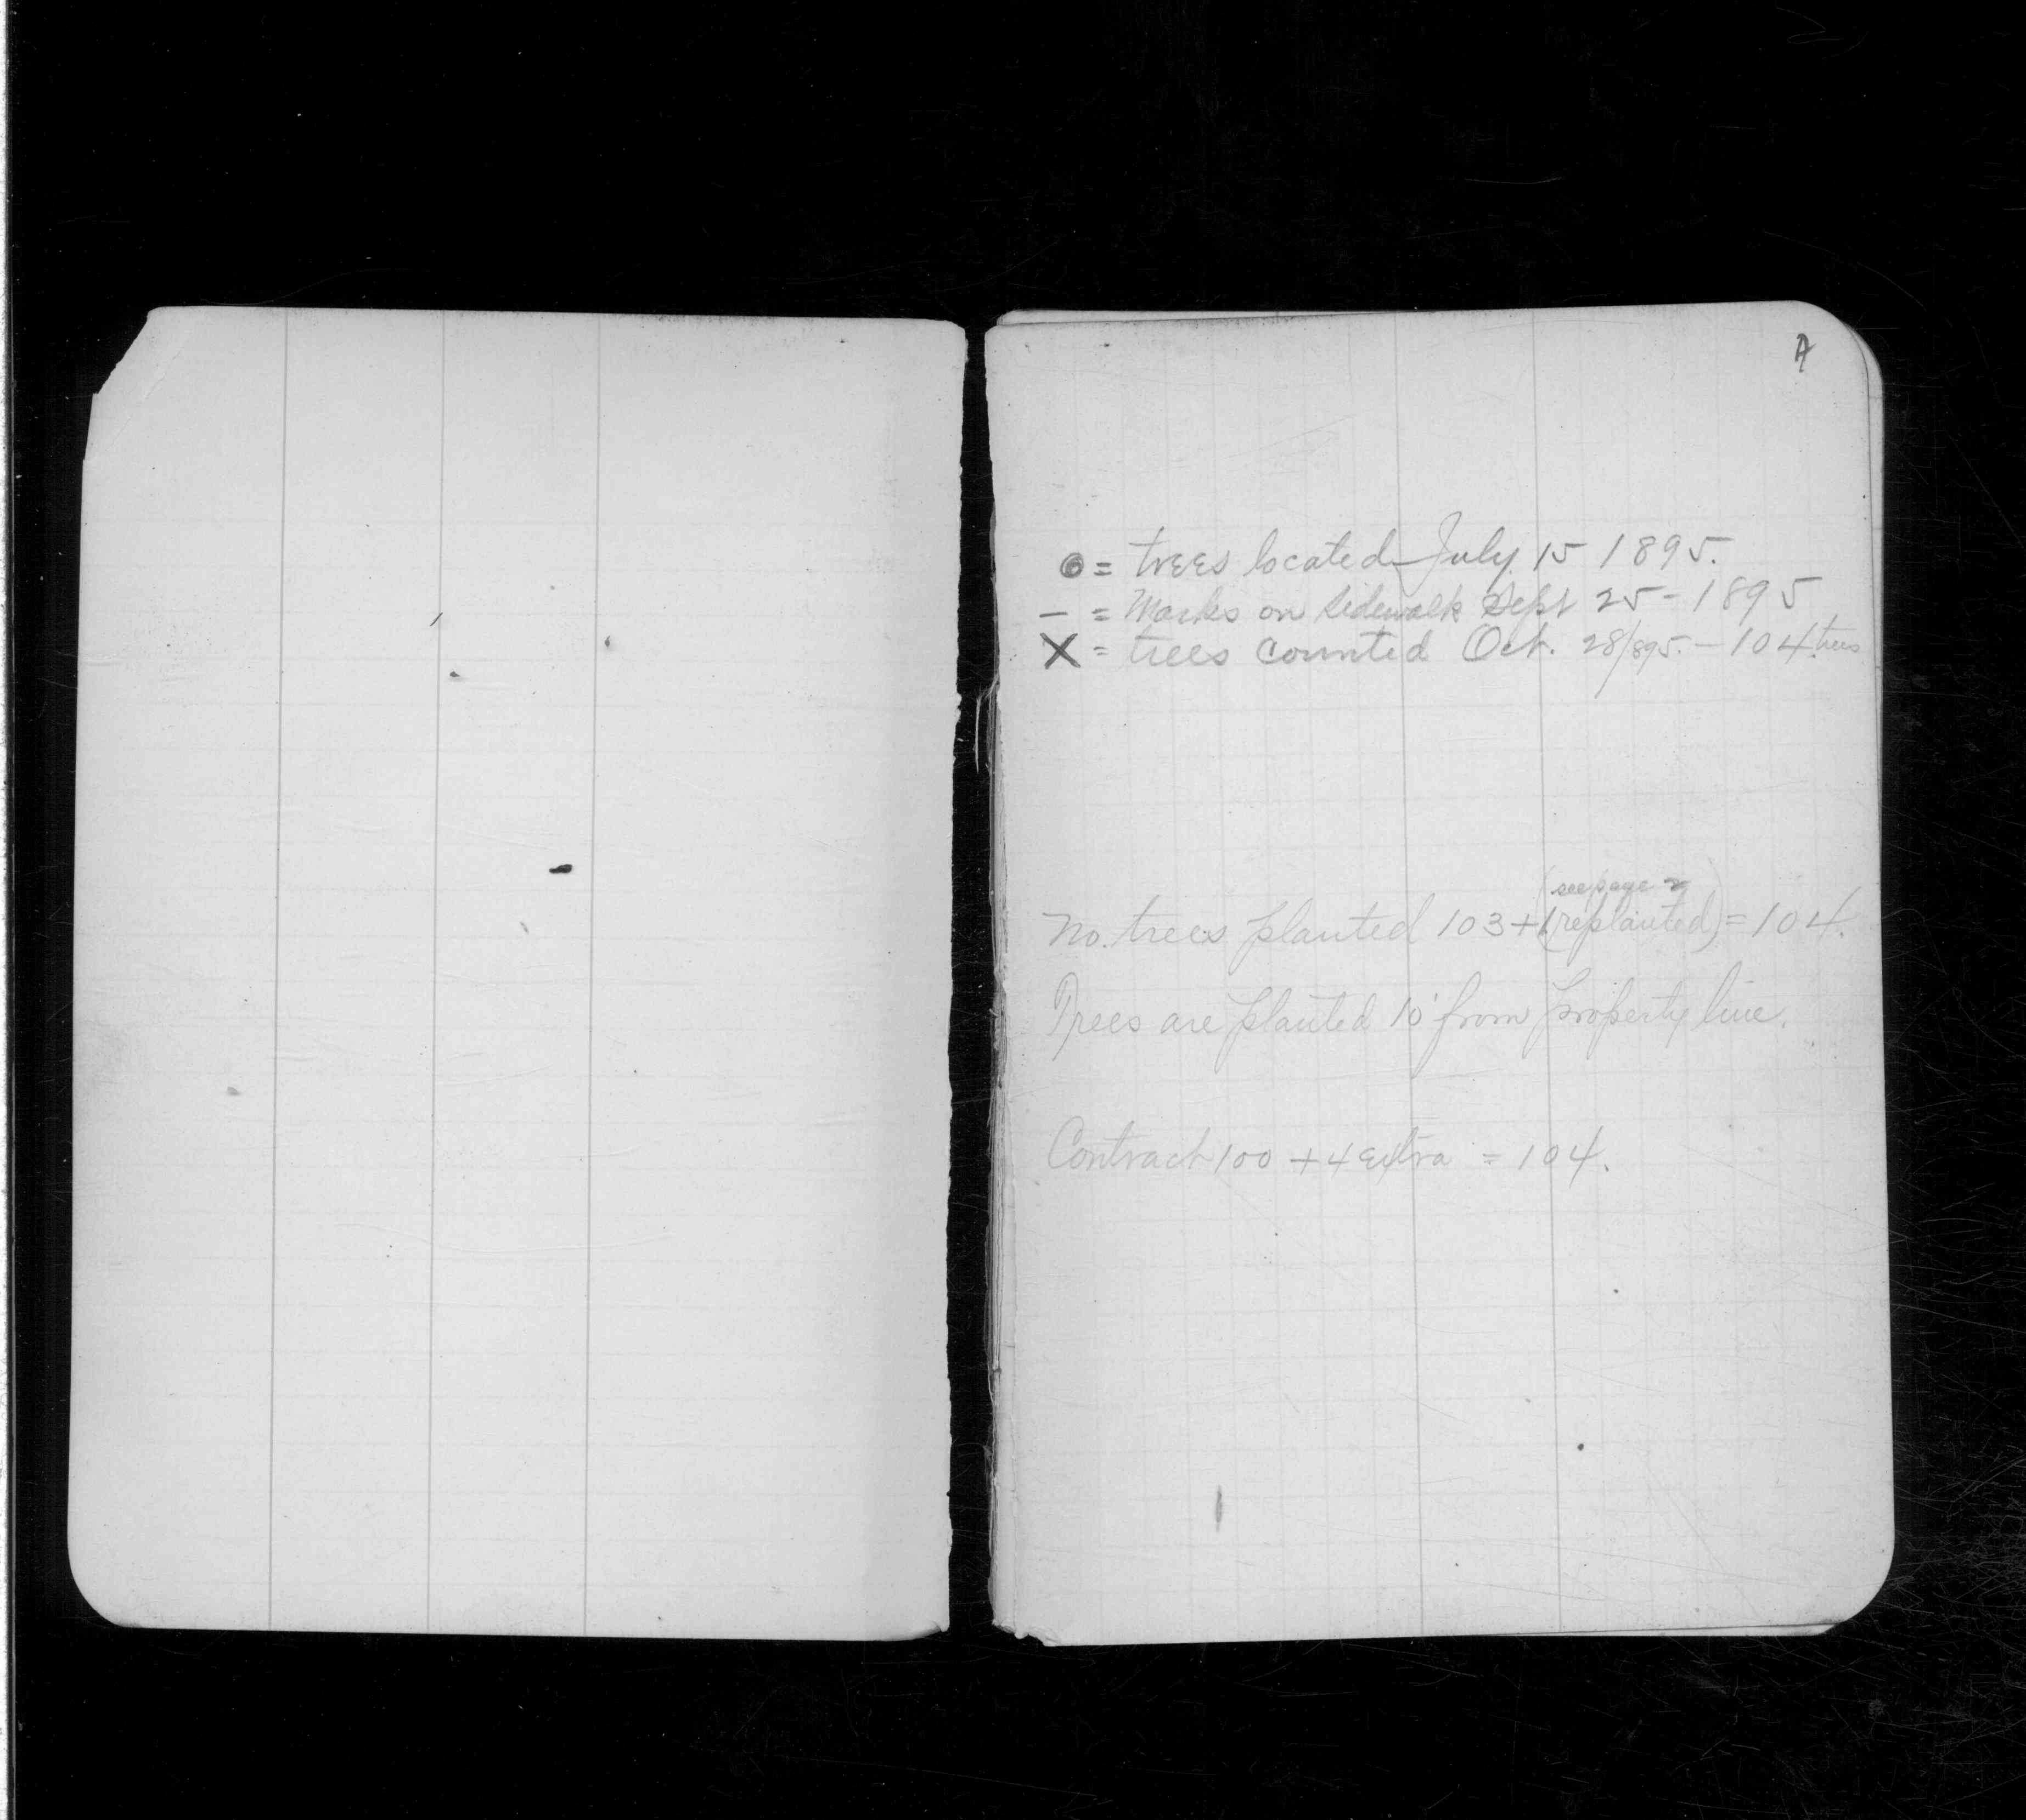 A
⊙ = trees located July 15 1895.
— = Marks on sidewalk Sept 25 - 1895
X = trees counted Oct. 28/895. - 104 trees
(see page 2
No. trees planted 103 + 1 (replanted) = 104.
Trees are planted 10' from property line.
Contract 100 + 4 extra = 104.